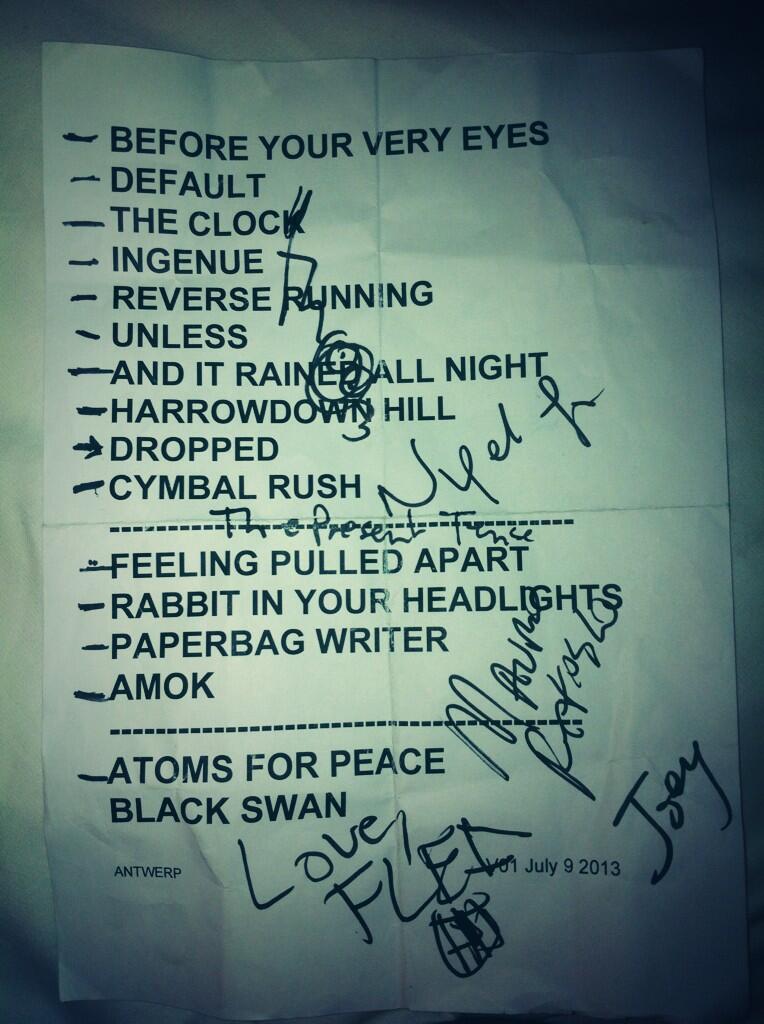 BEFORE YOUR VERY EYES
DEFAULT
THE CLOCK
INGENUE
REVERSE RUNNING
UNLESS
AND IT RAINED ALL NIGHT
HARROWDOWN HILL
DROPPED
Nigel
CYMBAL RUSH
The Present Tence
FEELING PULLED APART
RABBIT IN YOUR HEADLIGHTS
PAPERBAG WRITER
AMOK
Mauro
Refosco
ATOMS FOR PEACE
BLACK SWAN
Joey
Love,
FLEA
ANTWERP V01 July 9 2013